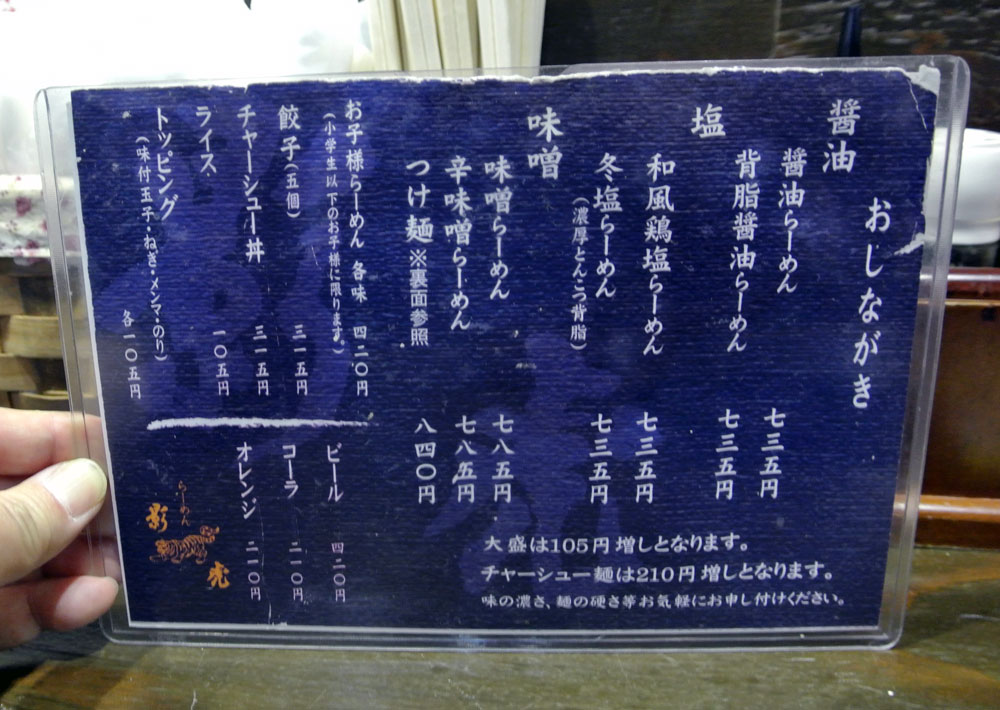 おしながき
醤油
醤油らーめん 七三五円
背脂醤油らーめん 七三五円
塩
和風鶏塩らーめん 七三五円
冬塩らーめん 七三五円
（濃厚とんこつ背脂）
味噌
味噌らーめん 七八五円
辛味噌らーめん 七八五円
つけ麺 ※裏面参照 八四〇円
お子様らーめん 各味 四二〇円
（小学生以下のお子様に限ります。）
餃子（五個） 三一五円
チャーシュー丼 三一五円
ライス 一〇五円
トッピング
（味付玉子・ねぎ・メンマ・のり） 各一〇五円
ビール 四二〇円
コーラ 二一〇円
オレンジ 二一〇円
大盛は105円増しとなります。
チャーシュー麺は210円増しとなります。
味の濃さ、麺の硬さ等お気軽にお申し付けください。
らーめん
影虎